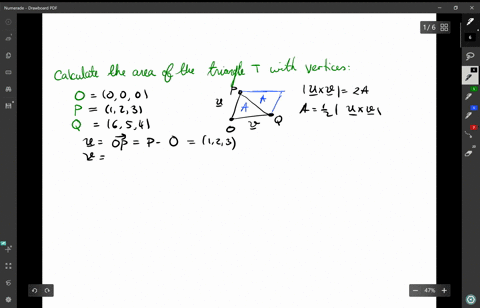 Numerade - Drawboard PDF
1 / 6
Calculate the area of the triangle T with vertices:
O = (0, 0, 0)
P = (1, 2, 3)
Q = (6, 5, 4)
P
u
A
A
O
v
Q
|u×v| = 2A
A = ½ | u×v |
u = OP = P - O = (1, 2, 3)
v =
47%